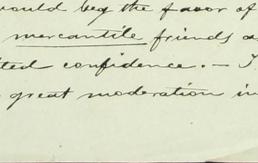 would beg the favor of
mercantile friends a
ted confidence. —
great moderation in